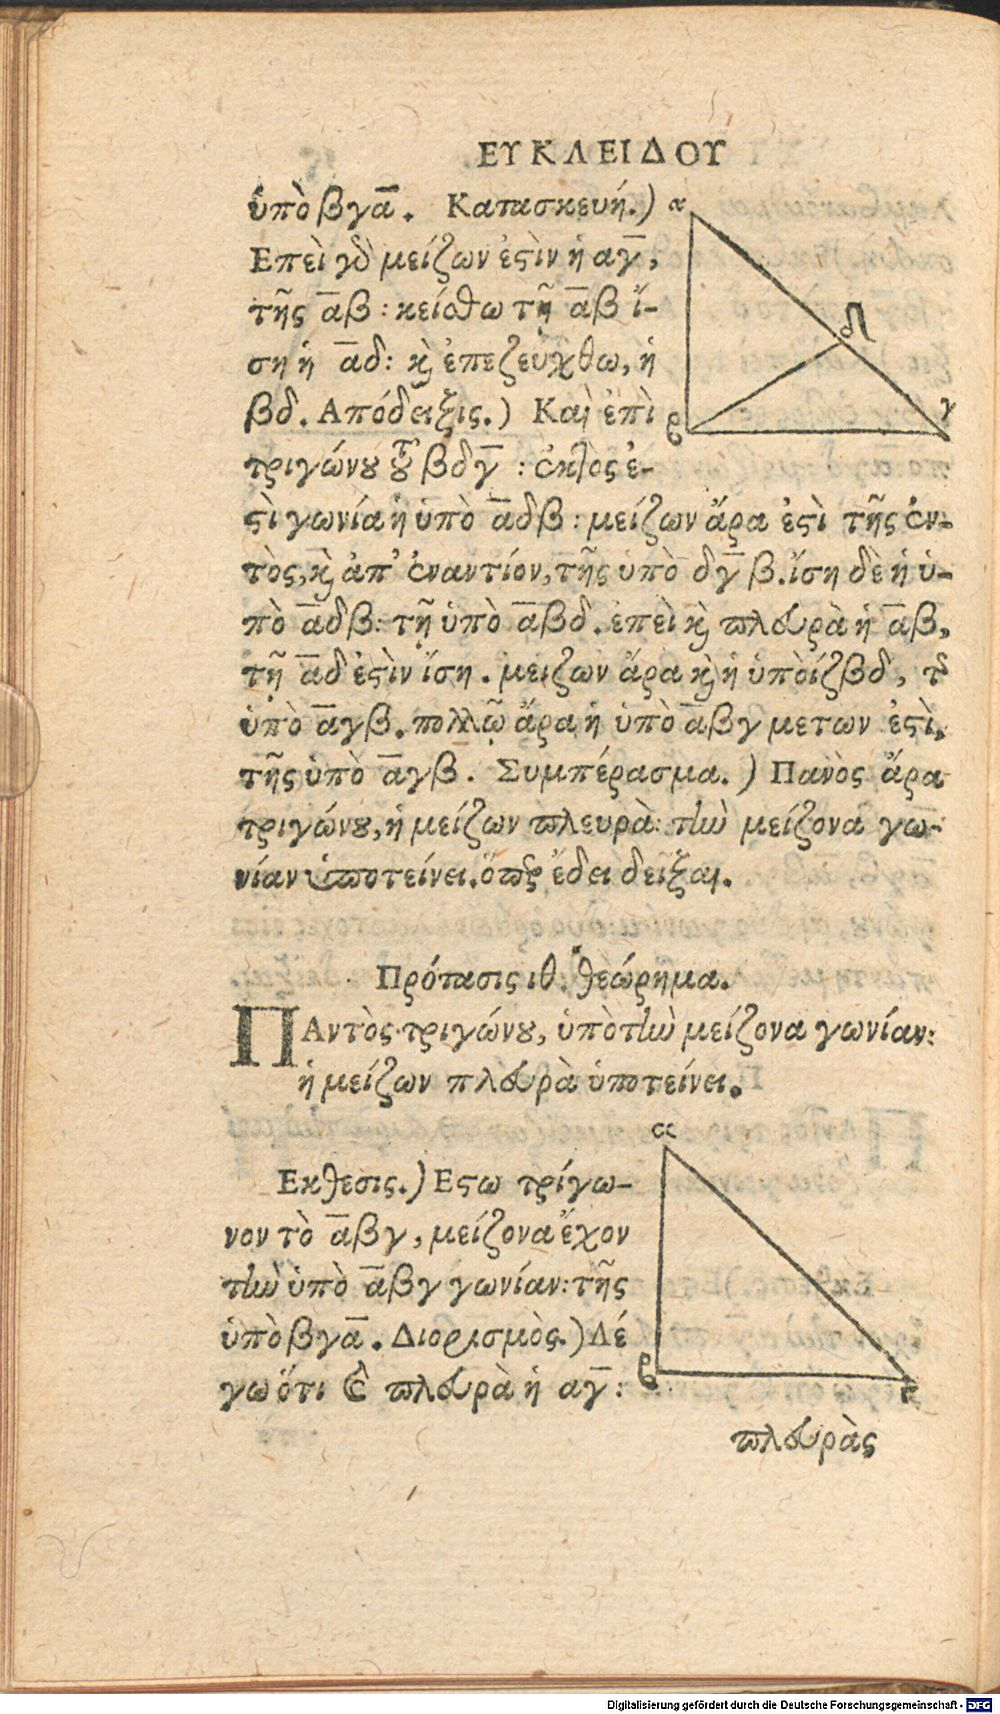 ΕΥΚΛΕΙΔΟΥ
ὑπὸ βγα̅. Κατασκευή.) α
Επεὶ γὸ μείζων ἐϛὶν ἡ αγ̅,
τῆς α̅β : κείσθω τῇ α̅β ἴ-
ση ἡ α̅δ: ϗ̀ ἐπεζεύχθω, ἡ
βδ. Απόδειξις.) Καὶ ἐπὶ
τριγώνȣ τȣ͂ βδγ̅ : ἐκτός ἐ-
ϛὶ γωνία ἡ ὑπὸ α̅δβ : μείζων ἄρα ἐϛὶ τῆς ἐν-
τὸς, ϗ̀ ἀπ' ἐναντίον, τῆς ὑπὸ δγ̅β. ἴση δὲ ἡ ὑ-
πὸ α̅δβ: τῇ ὑπὸ α̅βδ. ἐπεὶ ϗ̀ πλευρὰ ἡ α̅β,
τῇ α̅δ ἐϛὶν ἴση. μειζων ἄρα ϗ̀ ἡ ὑπὸ ίζβδ, τ͂
ὑπὸ α̅γβ. πολλῷ ἄρα ἡ ὑπὸ α̅βγ μετων ἐϛὶ,
τῆς ὑπὸ α̅γβ. Συμπέρασμα.) Πανὸς ἄρα
τριγώνȣ, ἡ μείζων πλευρὰ: τὴν μείζονα γω-
νίαν ὑποτείνει. ὅπερ ἔδει δεῖξαι.
Πρότασις ιθ. θεώρημα.
ΠΑντὸς τριγώνȣ, ὑπὸ τὴν μείζονα γωνίαν:
ἡ μείζων πλευρὰ ὑποτείνει.
Εκθεσις.) Εϛω τρίγω-
νον τὸ α̅βγ, μείζονα ἔχον
τὴν ὑπὸ α̅βγ γωνίαν: τῆς
ὑπὸ βγα̅. Διορισμὸς.) Λέ
γω ὅτι ϗ̀ πλευρὰ ἡ αγ̅ :
πλευρὰς
α
δ
β
γ
α
β
γ
Digitalisierung gefördert durch die Deutsche Forschungsgemeinschaft - DFG